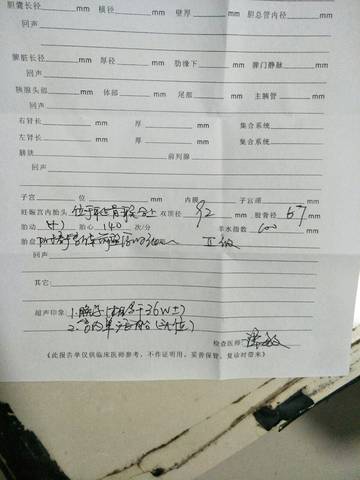 胆囊长径 mm 横径 mm 壁厚 mm 胆总管内径 mm
回声
脾脏长径 mm 厚径 mm 肋缘下 mm 脾门静脉 mm
回声
胰腺头部 mm 体部 mm 尾部 mm 主胰管 mm
右肾长 mm 厚 mm 集合系统 mm
左肾长 mm 厚 mm 集合系统 mm
膀胱 前列腺
回声
子宫 位 mm 内膜 mm 子宫颈 mm
妊娠宫内胎头 位于耻骨联合上 双顶径 92 mm 股骨径 67 mm
胎动 (+) 胎心 140 次/分 羊水指数 mm
胎盘 II级
回声
其它:
超声印象: 1.晚孕 36W±)
2.宫内单活胎 (头位)
检查医师
(此报告单仅供临床医师参考,不作证明用,妥善保管,复诊时带来)